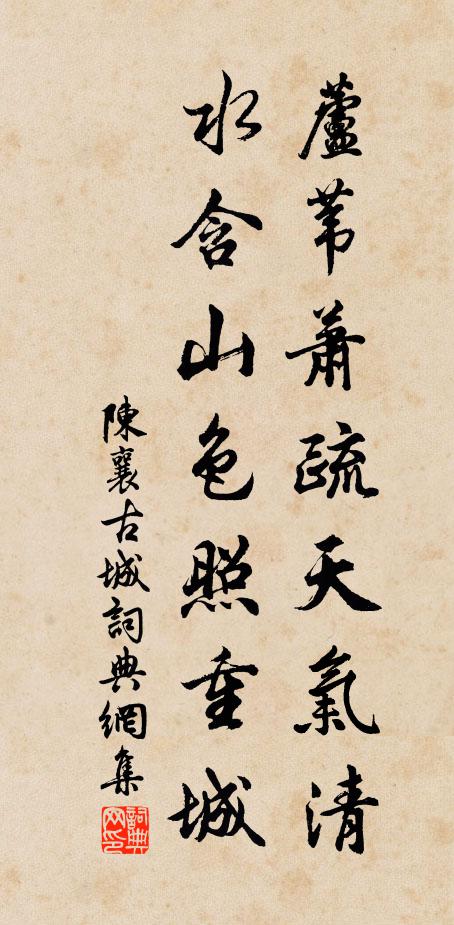 蘆葦蕭疏天氣清
水含山色照重城
陳襄古城詞典網集
詞典网印